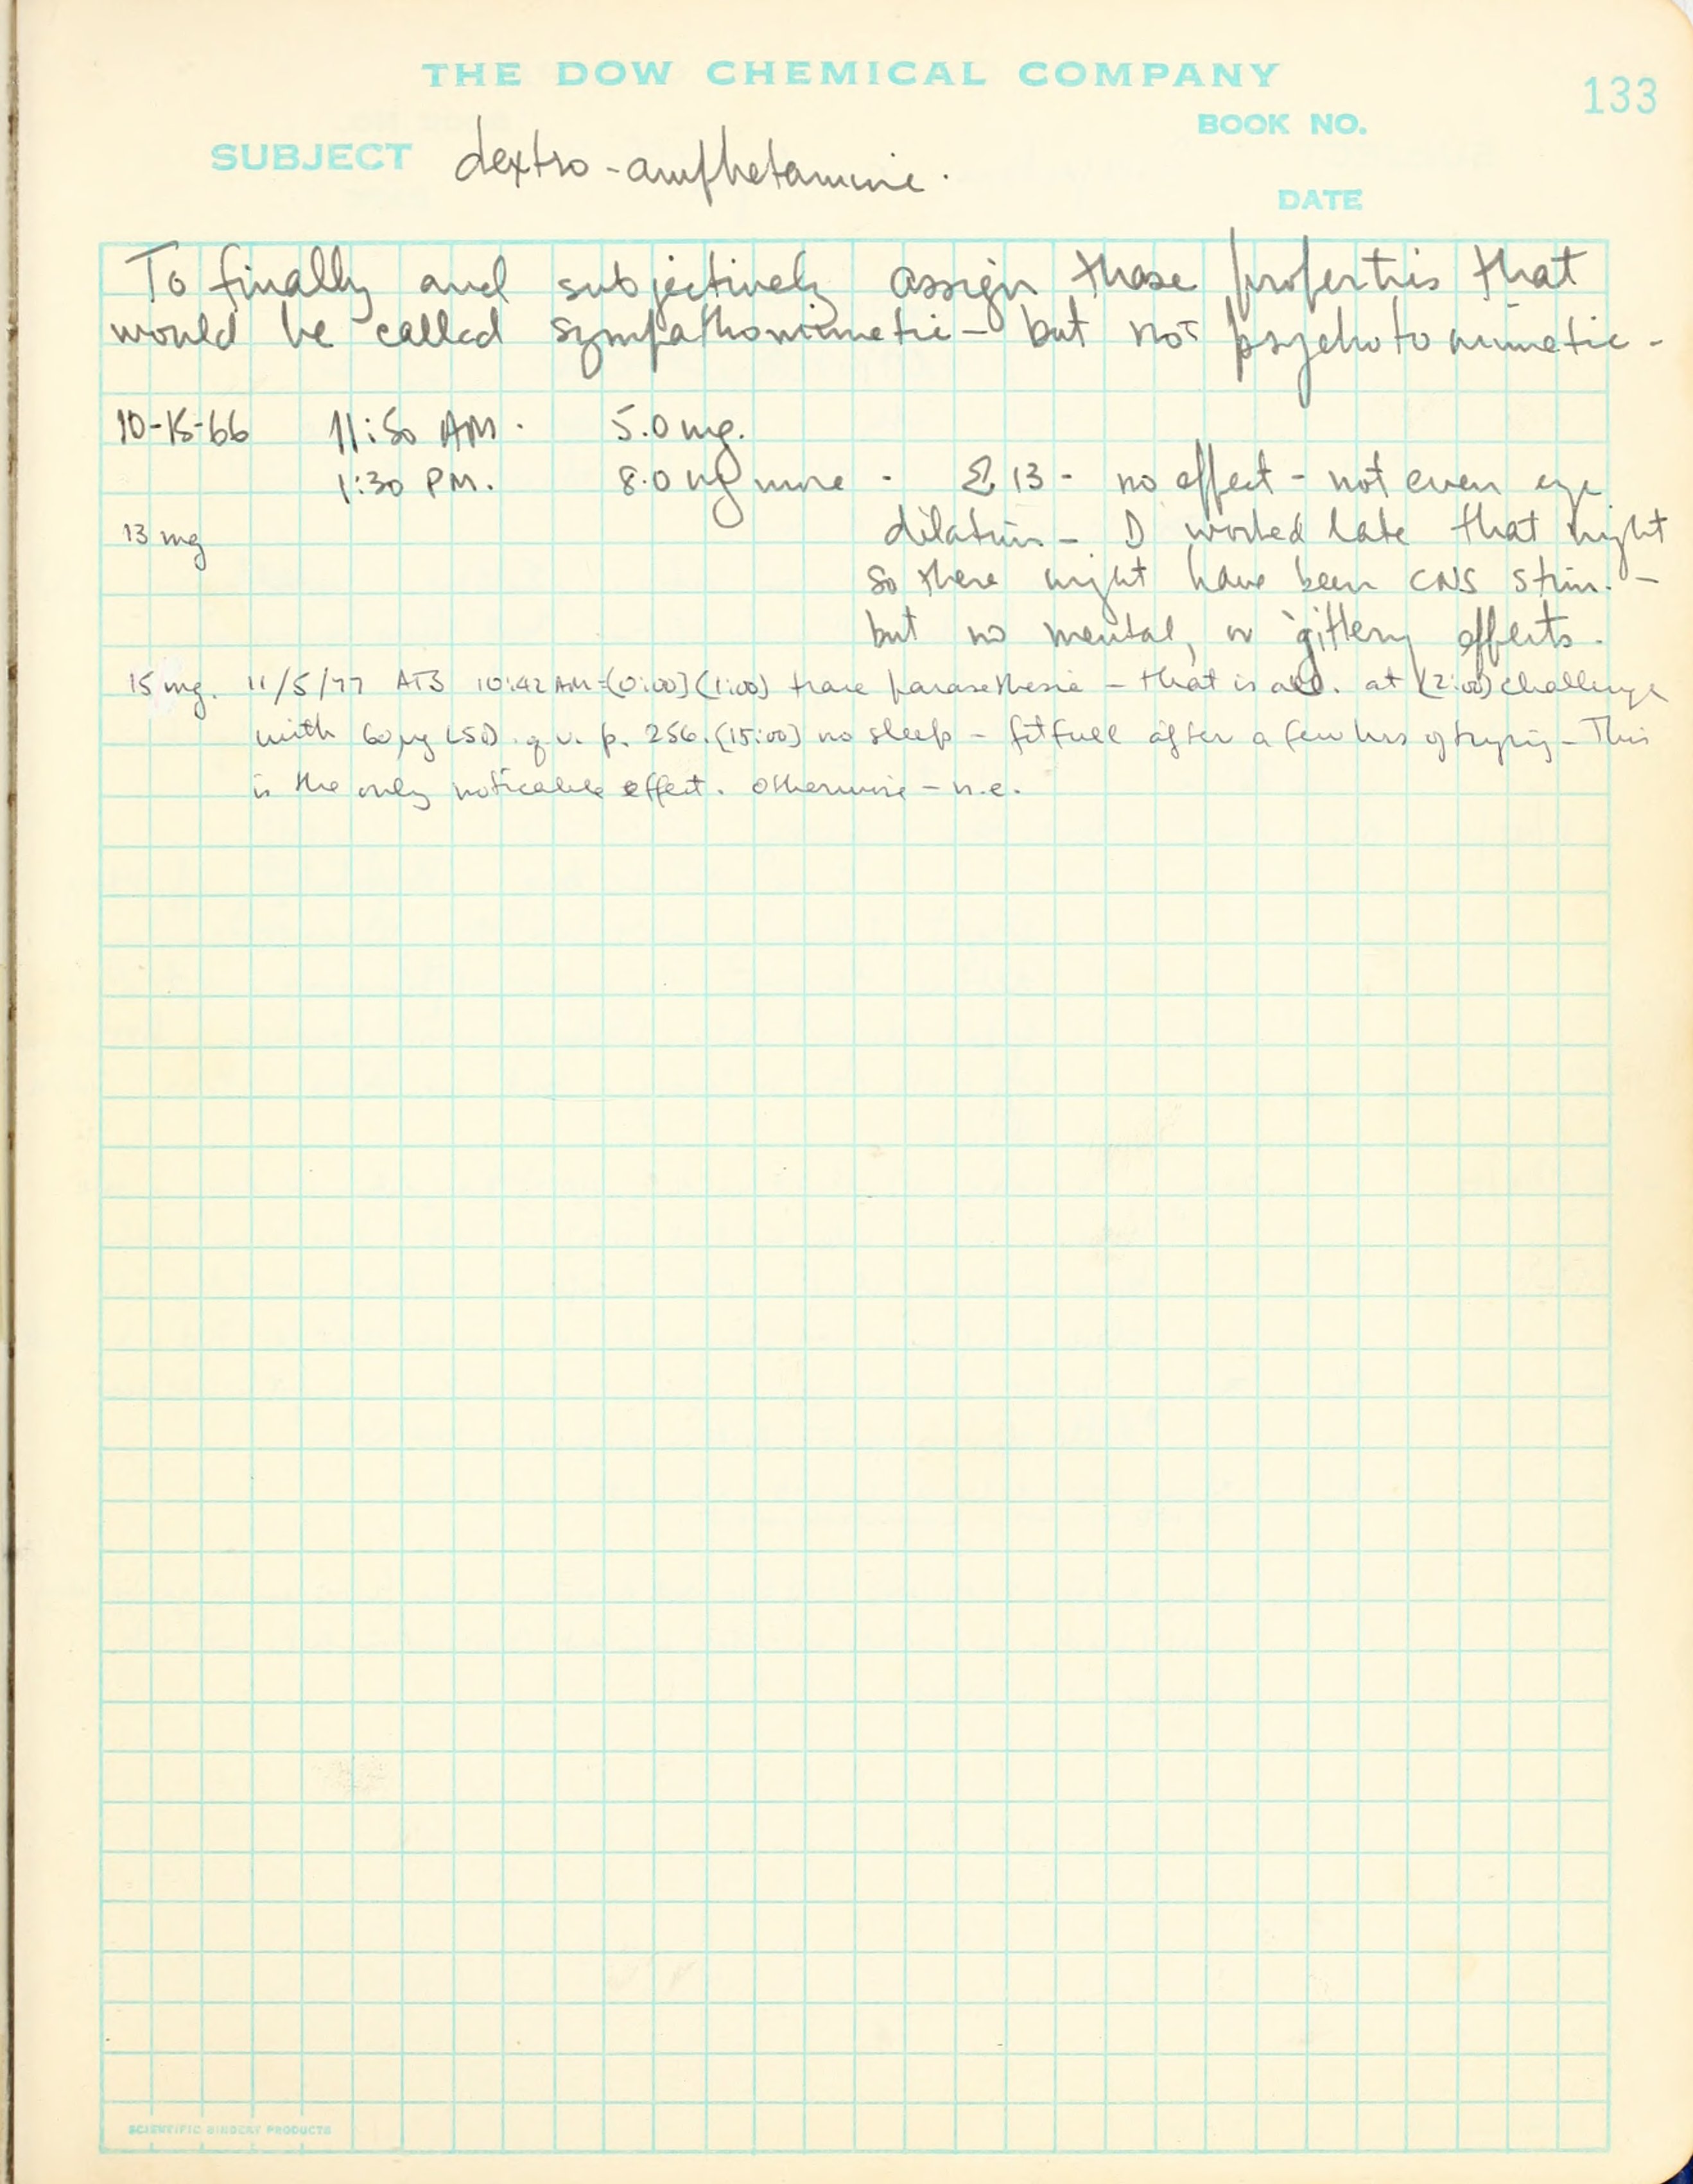 THE DOW CHEMICAL COMPANY
133
BOOK NO.
SUBJECT dextro-amphetamine.
DATE
To finally and subjectively assign those properties that
would be called sympathomimetic - but not psychotomimetic -
10-15-66 11:50 AM. 5.0 mg.
1:30 PM. 8.0 mg more - Σ 13 - no effect - not even eye
13 mg dilation - I worked late that night
so there might have been CNS stim. -
but no mental, or gittery effects.
15 mg. 11/5/77 ATS 10:42 AM = [0:00] (1:00) trace parasethesia - that is all. at (2:00) challenge
with 60 µg LSD. q.v. p. 256. [15:00] no sleep - fitfull after a few hrs of trying - This
is the only noticable effect. otherwise - n.e.
SCIENTIFIC BINDERY PRODUCTS